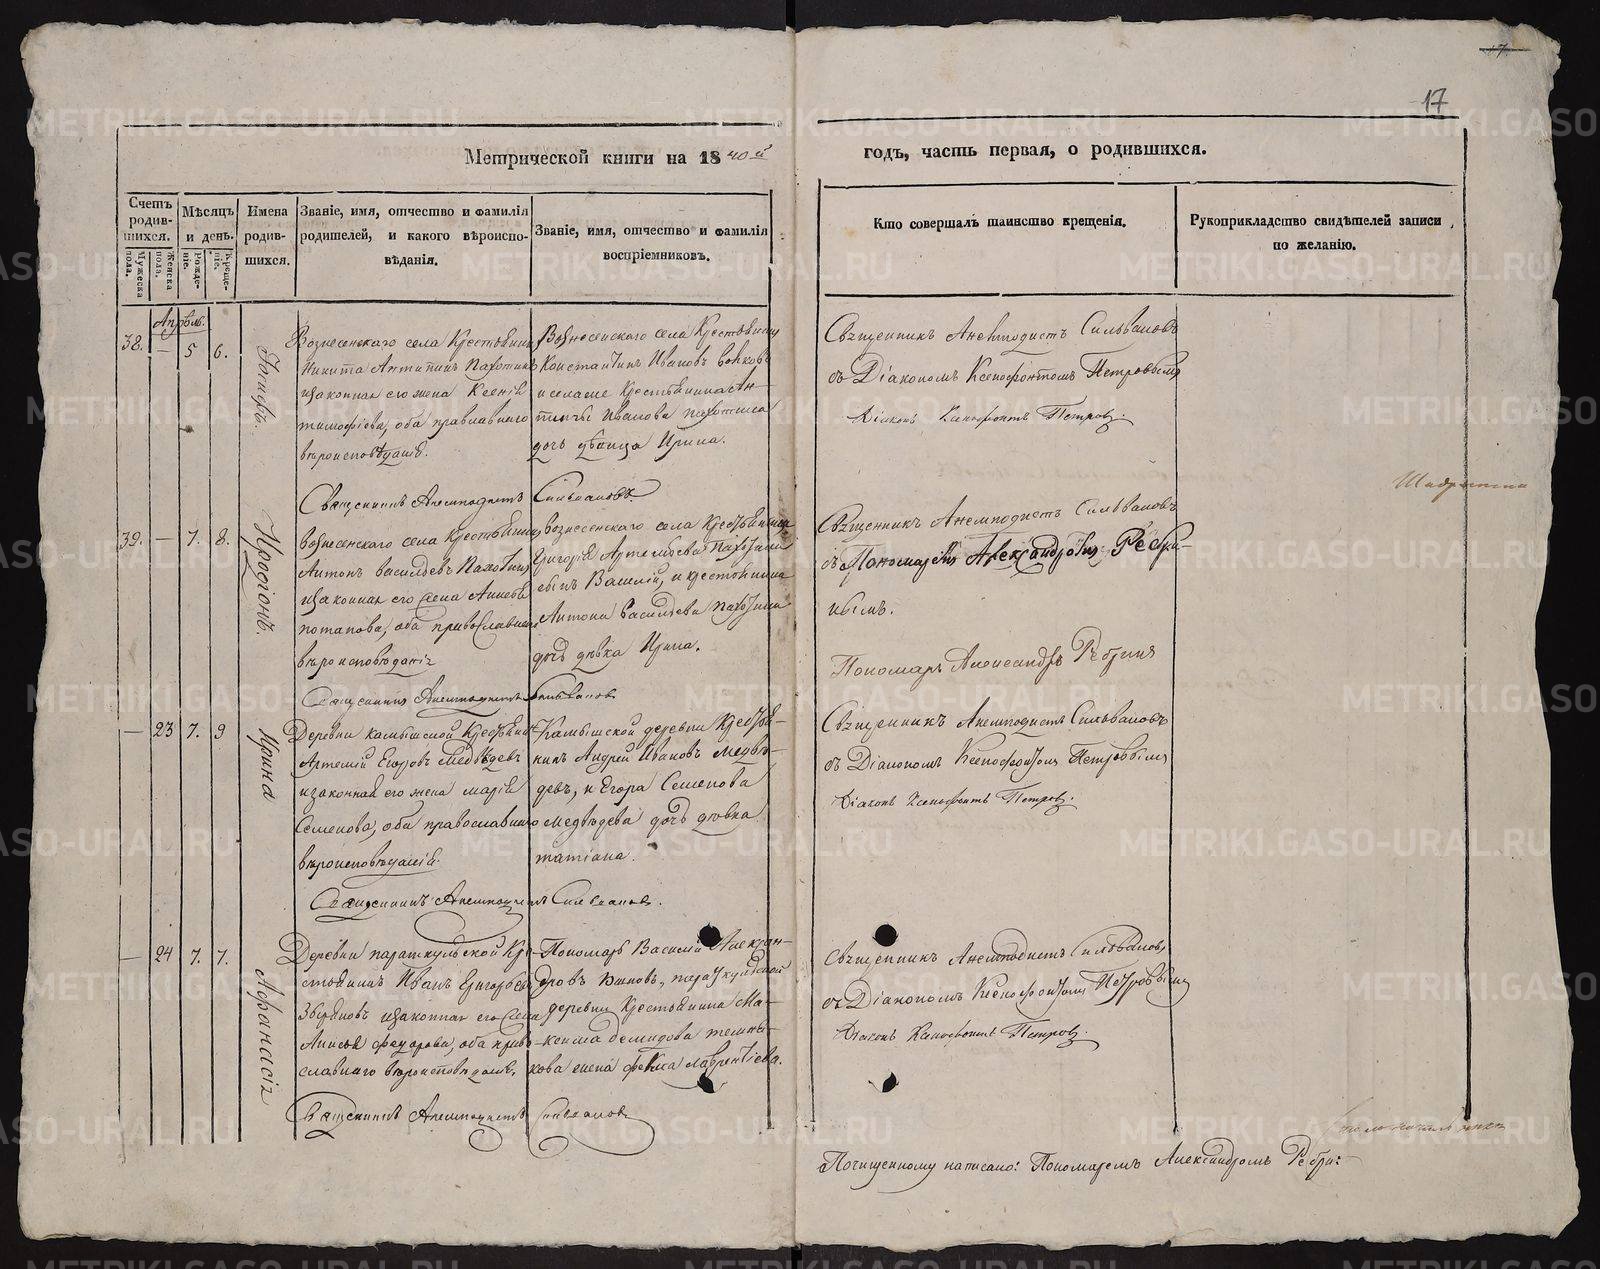 17
Метрической книги на 1840й
годъ, часть первая, о родившихся.
Счетъ родившихся.
Мужеска пола.
Женска пола.
Мѣсяцъ и день.
Рожденіе.
Крещеніе.
Имена родившихся.
Званіе, имя, отчество и фамилія
родителей, и какого вѣроиспо-
вѣданія.
Званіе, имя, отчество и фамилія
воспріемниковъ.
Кто совершалъ таинство крещенія.
Рукоприкладство свидѣтелей записи
по желанію.
Апрѣль.
38. — 5 6.
Іосифъ.
Вознесенскаго села Крестьянинъ
Никита Антипинъ Пахотинъ
и законная его жена Ксенія
тимофѣева, оба православнаго
вѣроисповѣданія.
Вознесенскаго села Крестьянинъ
Константинъ Ивановъ
и селенія Крестьянина Ан-
Иванова пахотина
дочь дѣвица Ирина.
Священникъ Анемподистъ Сильвановъ
съ Діакономъ Ксенофонтомъ Петровымъ
Діаконъ Ксенофонтъ Петровъ.
Священникъ Анемподистъ Сильвановъ
39. — 7. 8.
Иродіонъ.
вознесенскаго села Крестьянинъ
Антонъ васильевъ Пахотинъ
и законная его жена
потапова, оба православнаго
вѣроисповѣданія
вознесенскаго села Крестьянина
Григорія Артемьева Пахотина
сынъ Василій, и крестьянина
Антона васильева пахотина
дочь дѣвка Ирина.
Священникъ Анемподистъ Сильвановъ
съ Пономаремъ Александромъ Ребри-
нымъ.
Пономарь Александръ Ребринъ
Священникъ Анемподистъ Сильвановъ
— 23 7. 9
Ирина
Деревни камышской Крестьянинъ
Артемій Егоровъ Медвѣдевъ
и законная его жена марія
Семенова, оба православнаго
вѣроисповѣданія.
Камышской деревни Крестья-
нинъ Андрей Ивановъ медвѣ-
девъ, и Егора Семенова
медвѣдева дочь дѣвка
татіана.
Священникъ Анемподистъ Сильвановъ
съ Діакономъ Ксенофонтомъ Петровымъ
Діаконъ Ксенофонтъ Петровъ.
Священникъ Анемподистъ Сильвановъ.
— 24 7. 7.
Афанасія
Деревни параткульской Кре-
стьянинъ Иванъ Григорьевъ
Звѣревъ и законная его жена
Анисья федорова, оба право-
славнаго вѣроисповѣданія.
Пономарь Василій Алексан-
дровъ параткульской
деревни Крестьянина Ма-
ксима демидова
жена фекла лаврентіева.
Священникъ Анемподистъ Сильвановъ
съ Діакономъ Ксенофонтомъ Петровымъ
Діаконъ Ксенофонтъ Петровъ.
Священникъ Анемподистъ Сильвановъ
Почищенному написано: Пономаремъ Александромъ Ребри:
METRIKI.GASO-URAL.RU